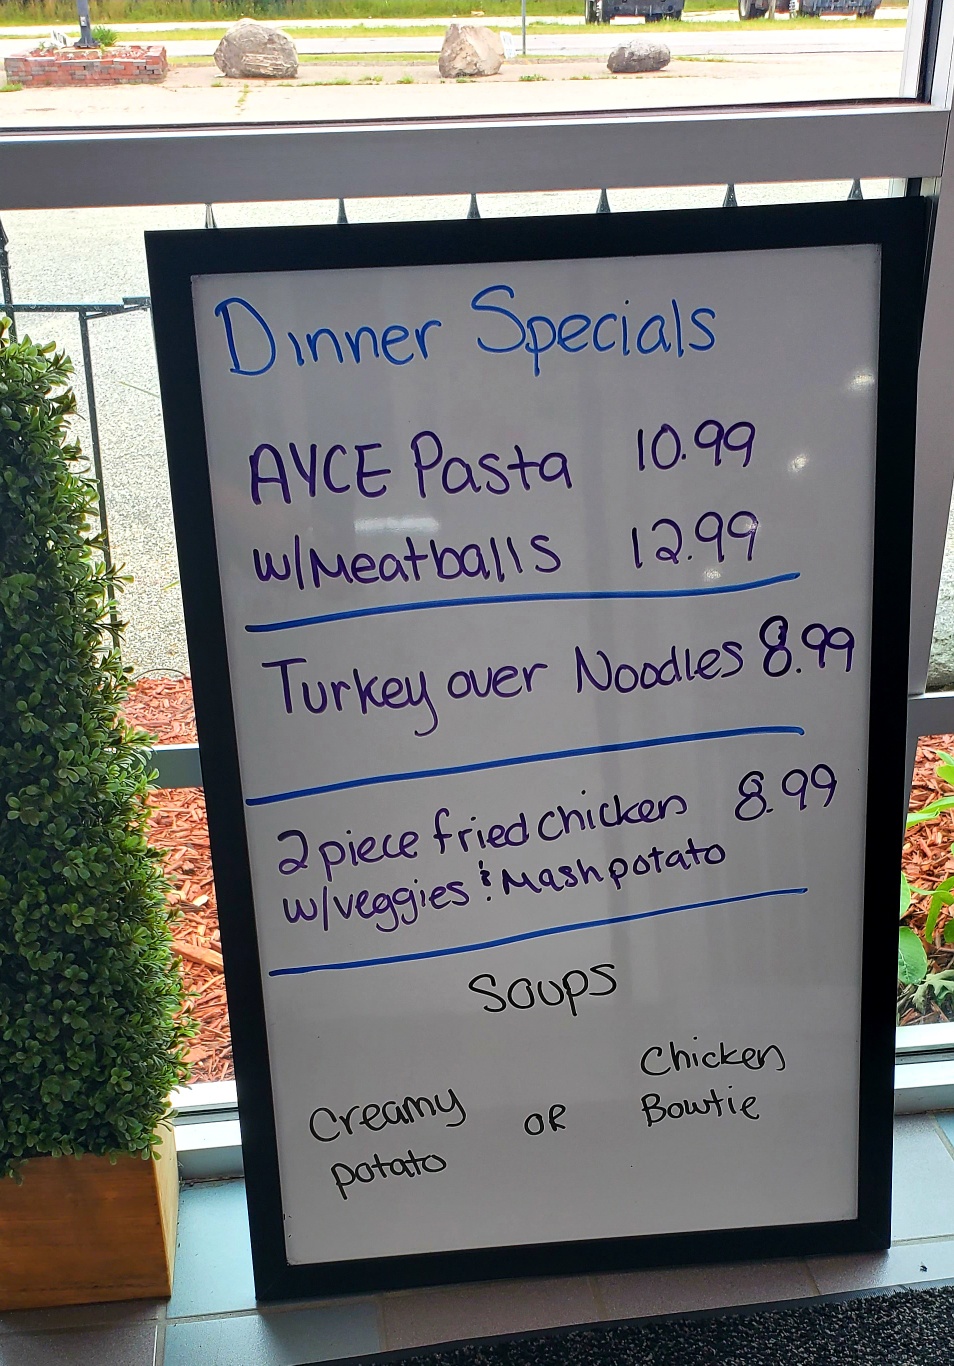 Dinner Specials
AYCE Pasta 10.99
w/Meatballs 12.99
Turkey over Noodles 8.99
2 piece fried chicken 8.99
w/veggies & Mash potato
Soups
Creamy potato or Chicken Bowtie